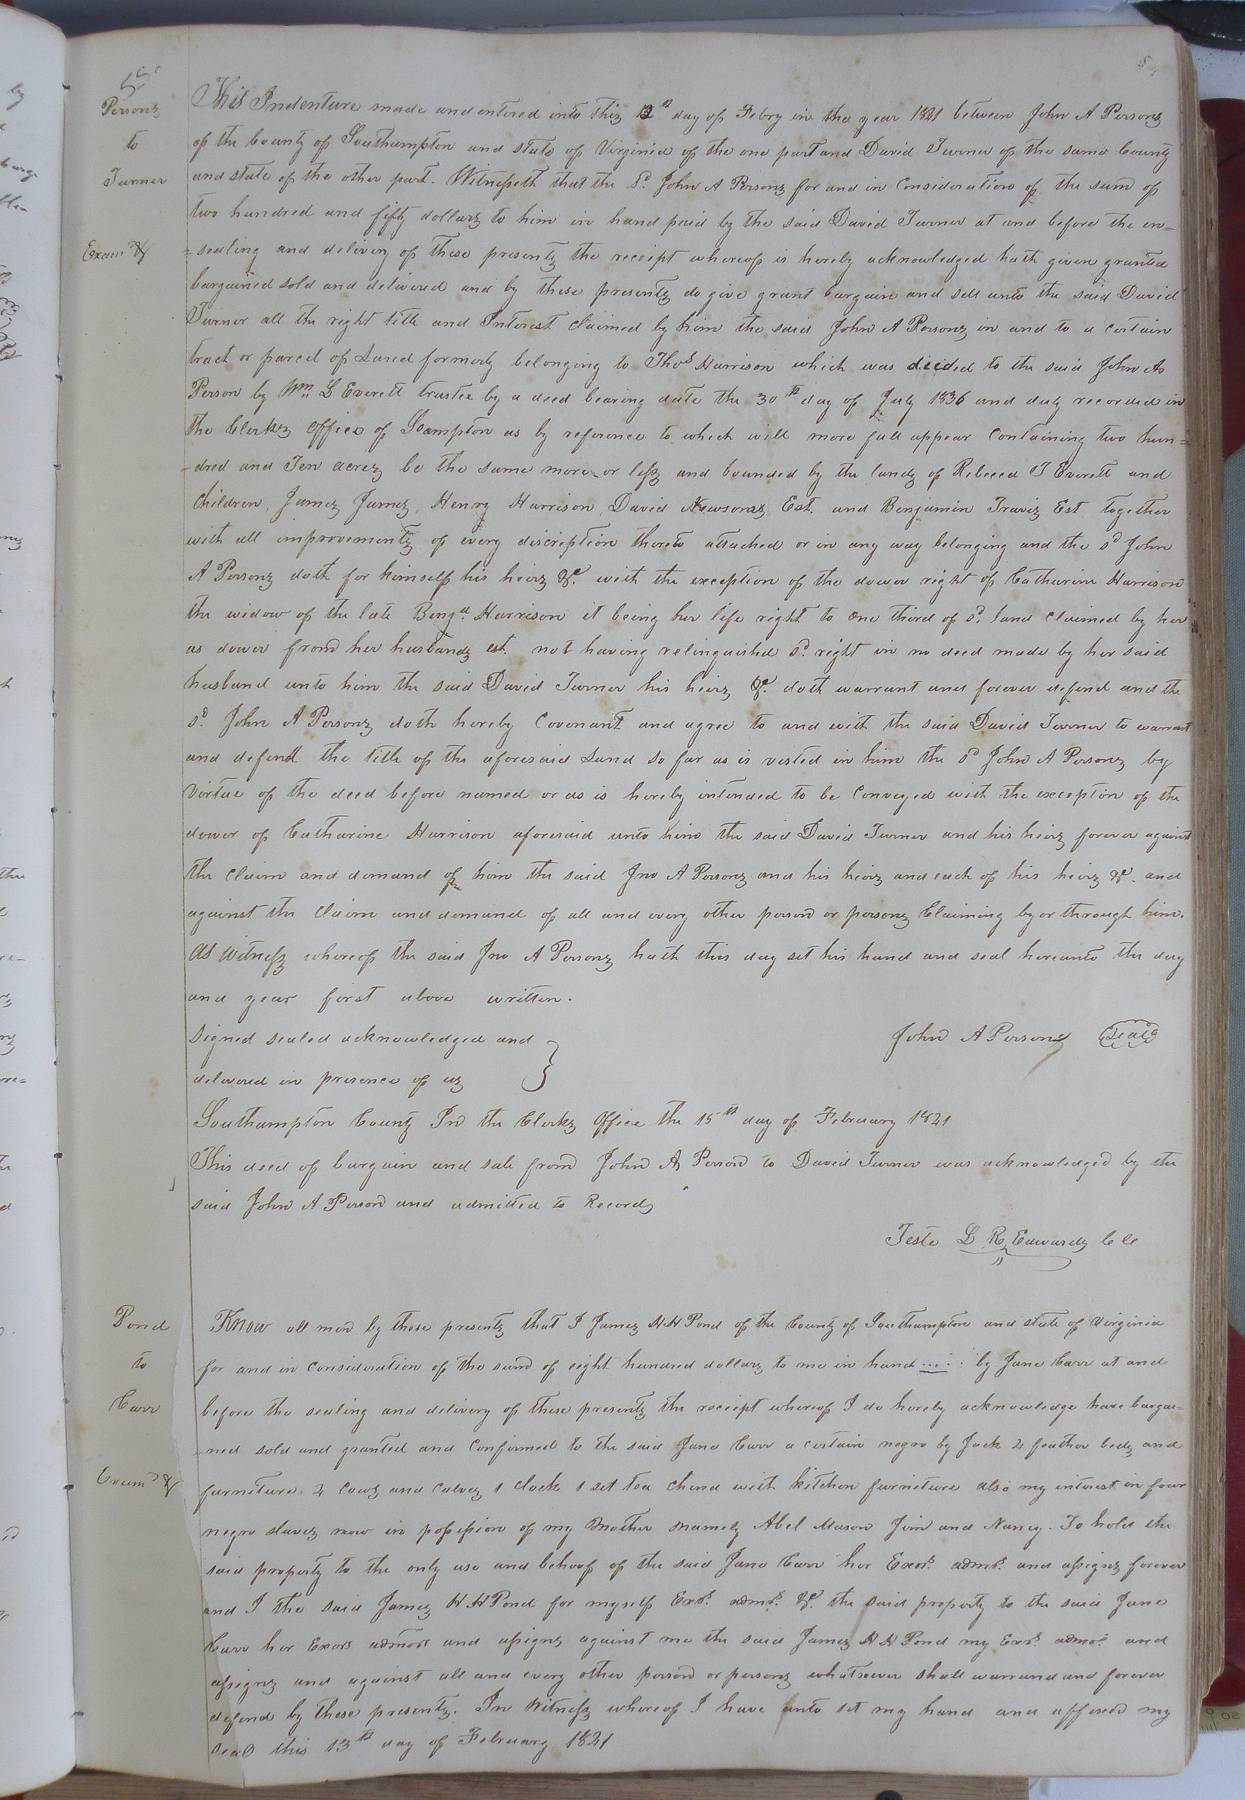 Persons
to
Turner
Exam<sup>d</sup> &
This Indenture made and entered into this 13<sup>th</sup> day of Febry in the year 1821 between John A Persons
of the County of Southampton and state of Virginia of the one part and David Turner of the same County
and state of the other part. Witnesseth that the S<sup>d</sup>. John A Persons for and in consideration of the sum of
two hundred and fifty dollars to him in hand paid by the said David Turner at and before the en=
=sealing and delivery of these presents the receipt whereof is hereby acknowledged hath given granted
bargained sold and delivered and by these presents do give grant bargain and sell unto the said David
Turner all the right title and Interest claimed by him the said John A Persons in and to a certain
tract or parcel of Land formerly belonging to Tho<sup>s</sup> Harrison which was deeded to the said John A
Person by W<sup>m</sup> L Everett trustee by a deed bearing date the 30<sup>th</sup> day of July 1836 and duly recorded in
the Clerks office of Scampton as by reference to which will more full appear containing two hun=
=dred and Ten acres be the same more or less and bounded by the lands of Rebecca T Everett and
Children, James James, Henry Harrison, David Newsoms Est. and Benjamin Travis Est together
with all improvements of every discreption thereto attached or in any way belonging and the s<sup>d</sup> John
A Persons doth for himself his heirs &<sup>c</sup>. with the exception of the dower right of Catharine Harrison
the widow of the late Benj<sup>a</sup>. Harrison it being her life right to one third of s<sup>d</sup>. land claimed by her
as dower from her husbands est. not having relinquished s<sup>d</sup>. right in no deed made by her said
husband unto him the said David Turner his heirs &<sup>c</sup>. doth warrant and forever defend and the
s<sup>d</sup>. John A Persons doth hereby Covenant and agree to and with the said David Turner to warrant
and defend the title of the aforesaid Land so far as is vested in him the s<sup>d</sup> John A Persons by
virtue of the deed before named or as is hereby intended to be conveyed with the exception of the
dower of Catharine Harrison aforesaid unto him the said David Turner and his heirs forever against
the claim and demand of him the said Jno A Persons and his heirs and each of his heirs &<sup>c</sup>. and
against the claim and demand of all and every other person or persons claiming by or through him.
As witness whereof the said Jno A Persons hath this day set his hand and seal hereunto the day
and year first above written.
Signed sealed acknowledged and
John A Persons Seal
delivered in presence of us
Southampton County In the Clerks Office the 15<sup>th</sup> day of February 1821
This deed of bargain and sale from John A Person to David Turner was acknowledged by the
said John A Person and admitted to Record
Teste L R Edwards C C
Pond
to
Carr
Exam<sup>d</sup> &
Know all men by these presents that I James H H Pond of the County of Southampton and state of Virginia
for and in consideration of the sum of eight hundred dollars to me in hand by Jane Carr at and
before the sealing and delivery of these presents the receipt whereof I do hereby acknowledge have bargai=
ned sold and granted and confirmed to the said Jane Carr a certain negro by Jack 2 feather beds and
furniture. 2 cows and calves 1 clock 1 set tea chend with kitchen furniture also my interest in four
negro slaves now in possession of my Mother namely Abel Mason Jim and Nancy. To hold the
said property to the only use and behoof of the said Jane Carr her Exor<sup>s</sup>. admr<sup>s</sup>. and assigns forever
and I the said James H H Pond for myself Exr<sup>s</sup>. admr<sup>s</sup>. &<sup>c</sup>. the said property to the said Jane
Carr her Exors admors and assigns against me the said James H H Pond my Exr<sup>s</sup>. admo<sup>s</sup>. and
assigns and against all and every other person or persons whatsoever shall warrand and forever
defend by these presents. In Witness whereof I have unto set my hand and affixed my
seal this 13<sup>th</sup> day of February 1821